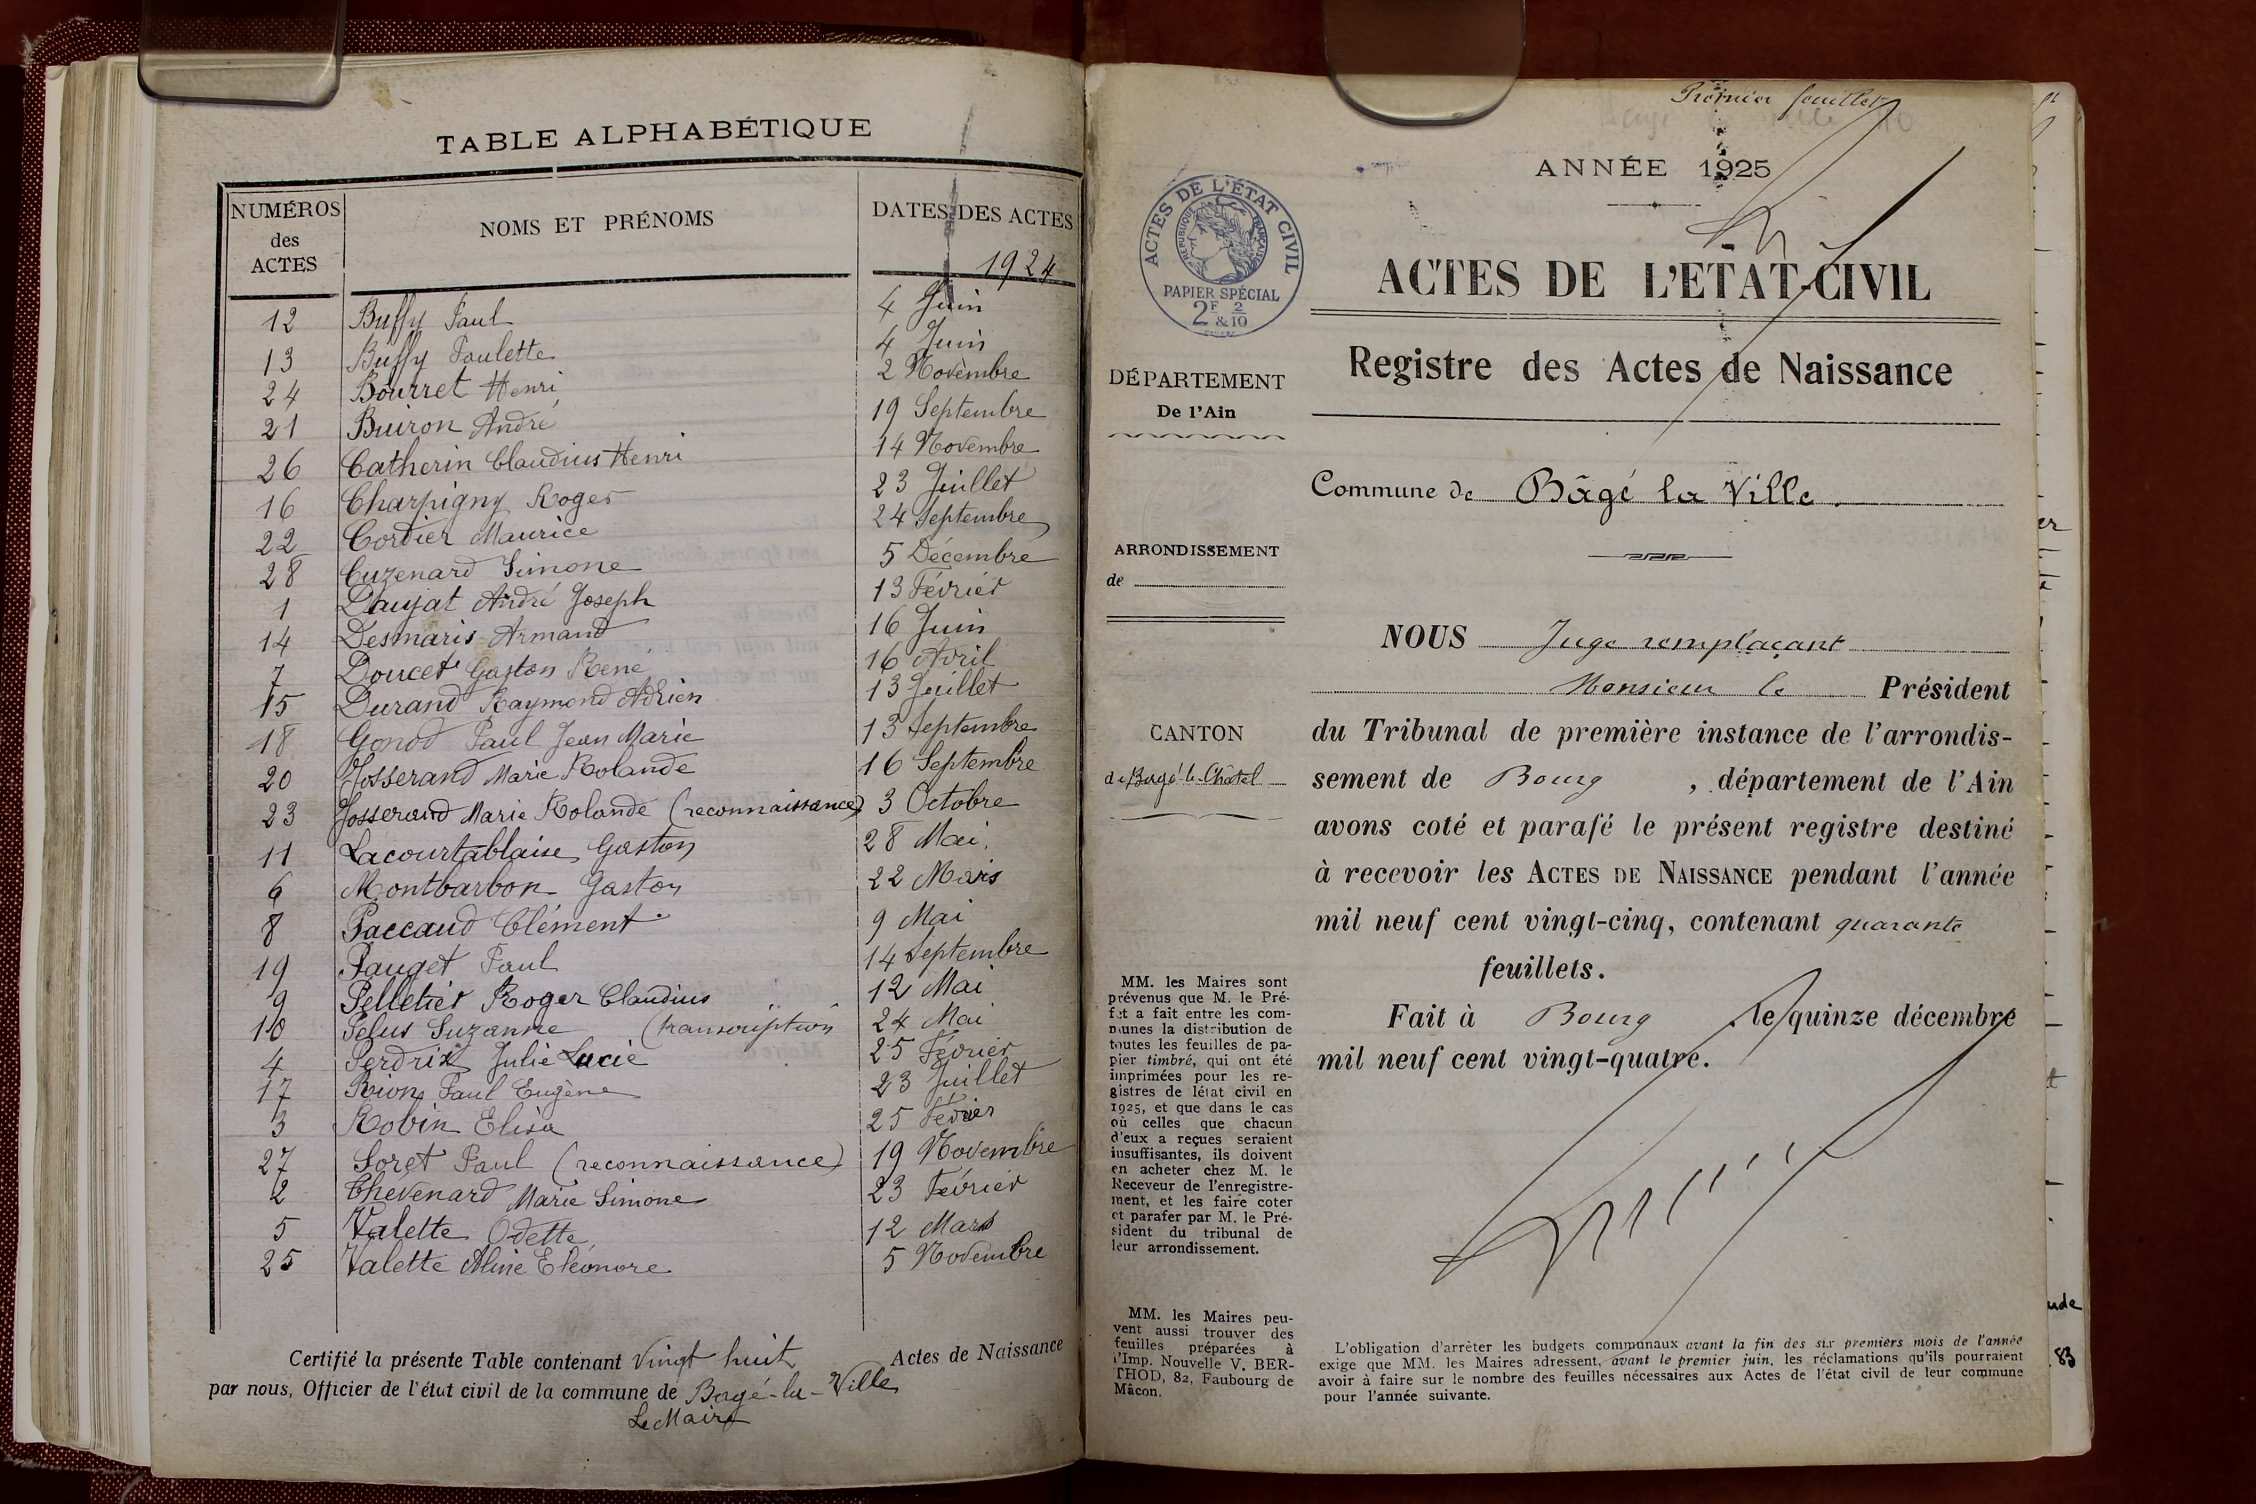 TABLE ALPHABÉTIQUE
NUMÉROS des ACTES NOMS ET PRÉNOMS DATES DES ACTES
1924
12 Buffy Paul 4 Juin
13 Buffy Paulette 4 Juin
24 Bourret Henri 2 Novembre
21 Buiron André 19 Septembre
26 Catherin Claudius Henri 14 Novembre
16 Charpigny Roger 23 Juillet
22 Cordier Maurice 24 Septembre
28 Cuzenard Simone 5 Décembre
1 Daujat André Joseph 13 Février
14 Desmaris Armand 16 Juin
7 Doucet Gaston René 16 Avril
15 Durand Raymond Adrien 13 Juillet
18 Gonod Paul Jean Marie 13 Septembre
20 Josserand Marie Rolande 16 Septembre
23 Josserand Marie Rolande (reconnaissance) 3 Octobre
11 Lacourtablaise Gaston 28 Mai.
6 Montbarbon Gaston 22 Mars
8 Paccaud Clément 9 Mai
19 Pauget Paul 14 Septembre
9 Pelletier Roger Claudius 12 Mai
10 Pelus Suzanne (transcription 24 Mai
4 Perdrix Julie Lucie 25 Février
17 Rion Paul Eugène 23 Juillet
3 Robin Elisa 25 Février
27 Soret Paul (reconnaissance) 19 Novembre
2 Thévenard Marie Simone 23 Février
5 Valette Odette 12 Mars
25 Valette Aline Eléonore 5 Novembre
Certifié la présente Table contenant Vingt huit Actes de Naissance
par nous, Officier de l'état civil de la commune de Bagé-la-Ville
Le Maire
Premier feuillet
ANNÉE 1925
ACTES DE L'ÉTAT CIVIL
RÉPUBLIQUE FRANÇAISE
PAPIER SPÉCIAL
2F & 2/10
ACTES DE L'ETAT-CIVIL
Registre des Actes de Naissance
DÉPARTEMENT
De l'Ain
Commune de Bâgé la Ville.
ARRONDISSEMENT
de
NOUS Juge remplaçant
Monsieur le Président
CANTON
de Bagé-le-Châtel
du Tribunal de première instance de l'arrondis-
sement de Bourg, département de l'Ain
avons coté et parafé le présent registre destiné
à recevoir les ACTES DE NAISSANCE pendant l'année
mil neuf cent vingt-cinq, contenant quarante
feuillets.
Fait à Bourg, le quinze décembre
mil neuf cent vingt-quatre.
MM. les Maires sont
prévenus que M. le Pré-
fet a fait entre les com-
munes la distribution de
toutes les feuilles de pa-
pier timbré, qui ont été
imprimées pour les re-
gistres de létat civil en
1925, et que dans le cas
où celles que chacun
d'eux a reçues seraient
insuffisantes, ils doivent
en acheter chez M. le
Receveur de l'enregistre-
ment, et les faire coter
et parafer par M. le Pré-
sident du tribunal de
leur arrondissement.
MM. les Maires peu-
vent aussi trouver des
feuilles préparées à
l'Imp. Nouvelle V. BER-
THOD, 82, Faubourg de
Mâcon.
L'obligation d'arrêter les budgets communaux avant la fin des six premiers mois de l'année
exige que MM. les Maires adressent, avant le premier juin, les réclamations qu'ils pourraient
avoir à faire sur le nombre des feuilles nécessaires aux Actes de l'état civil de leur commune
pour l'année suivante.
83